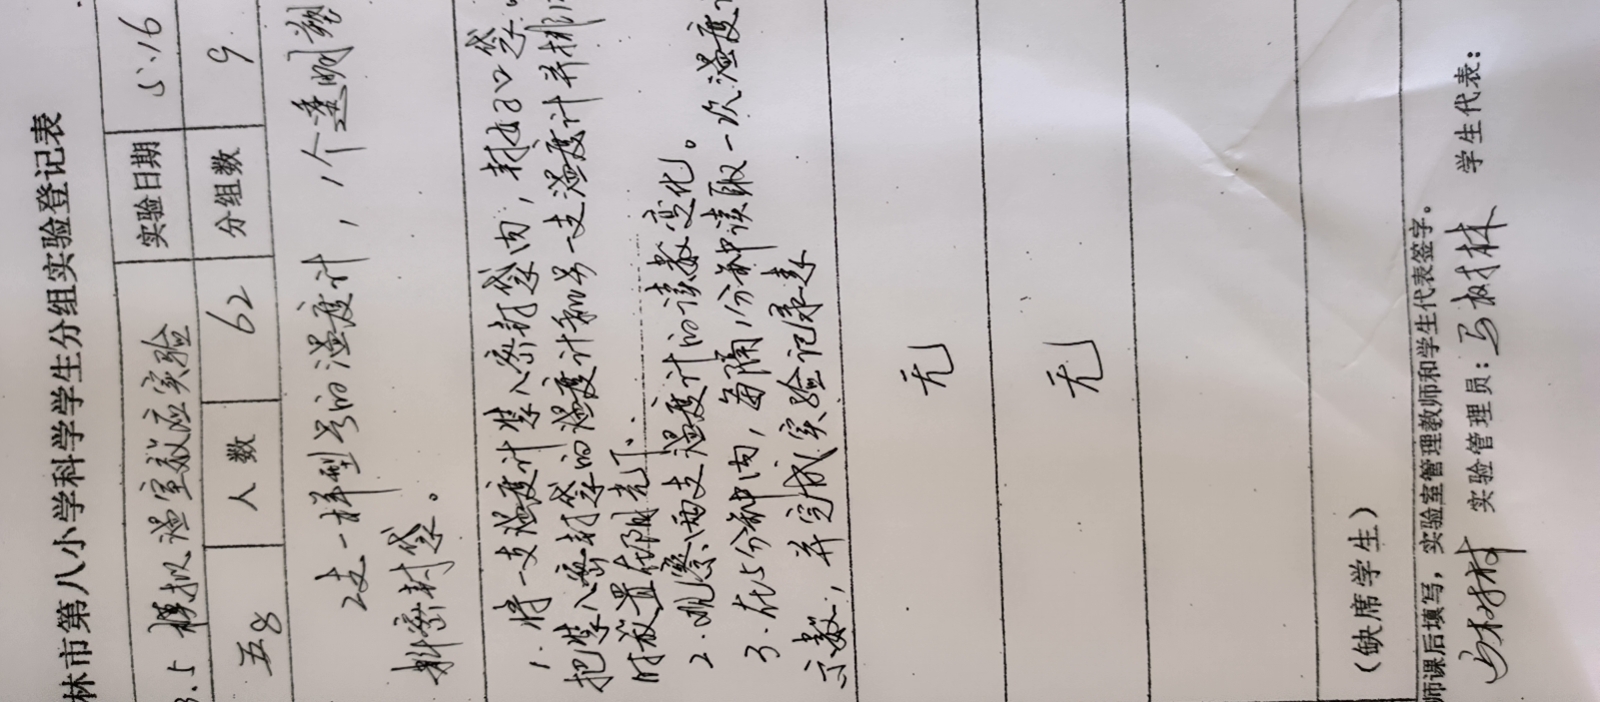 林市第八小学科学学生分组实验登记表
3.5 模拟温室效应实验 实验日期 5.16
五8 人数 62 分组数 9
2支一样型号的温度计，1个透明塑
料密封袋。
1.将一支温度计装入密封袋内，封好口袋。
把装入密封袋的温度计和另一支温度计并排
时放置在阳光下。
2.观察两支温度计的读数变化。
3.在5分钟内，每隔1分钟读取一次温度
示数，并完成实验记录表
无
无
（缺席学生）
师课后填写，实验室管理教师和学生代表签字。
实验管理员：马树林 学生代表：